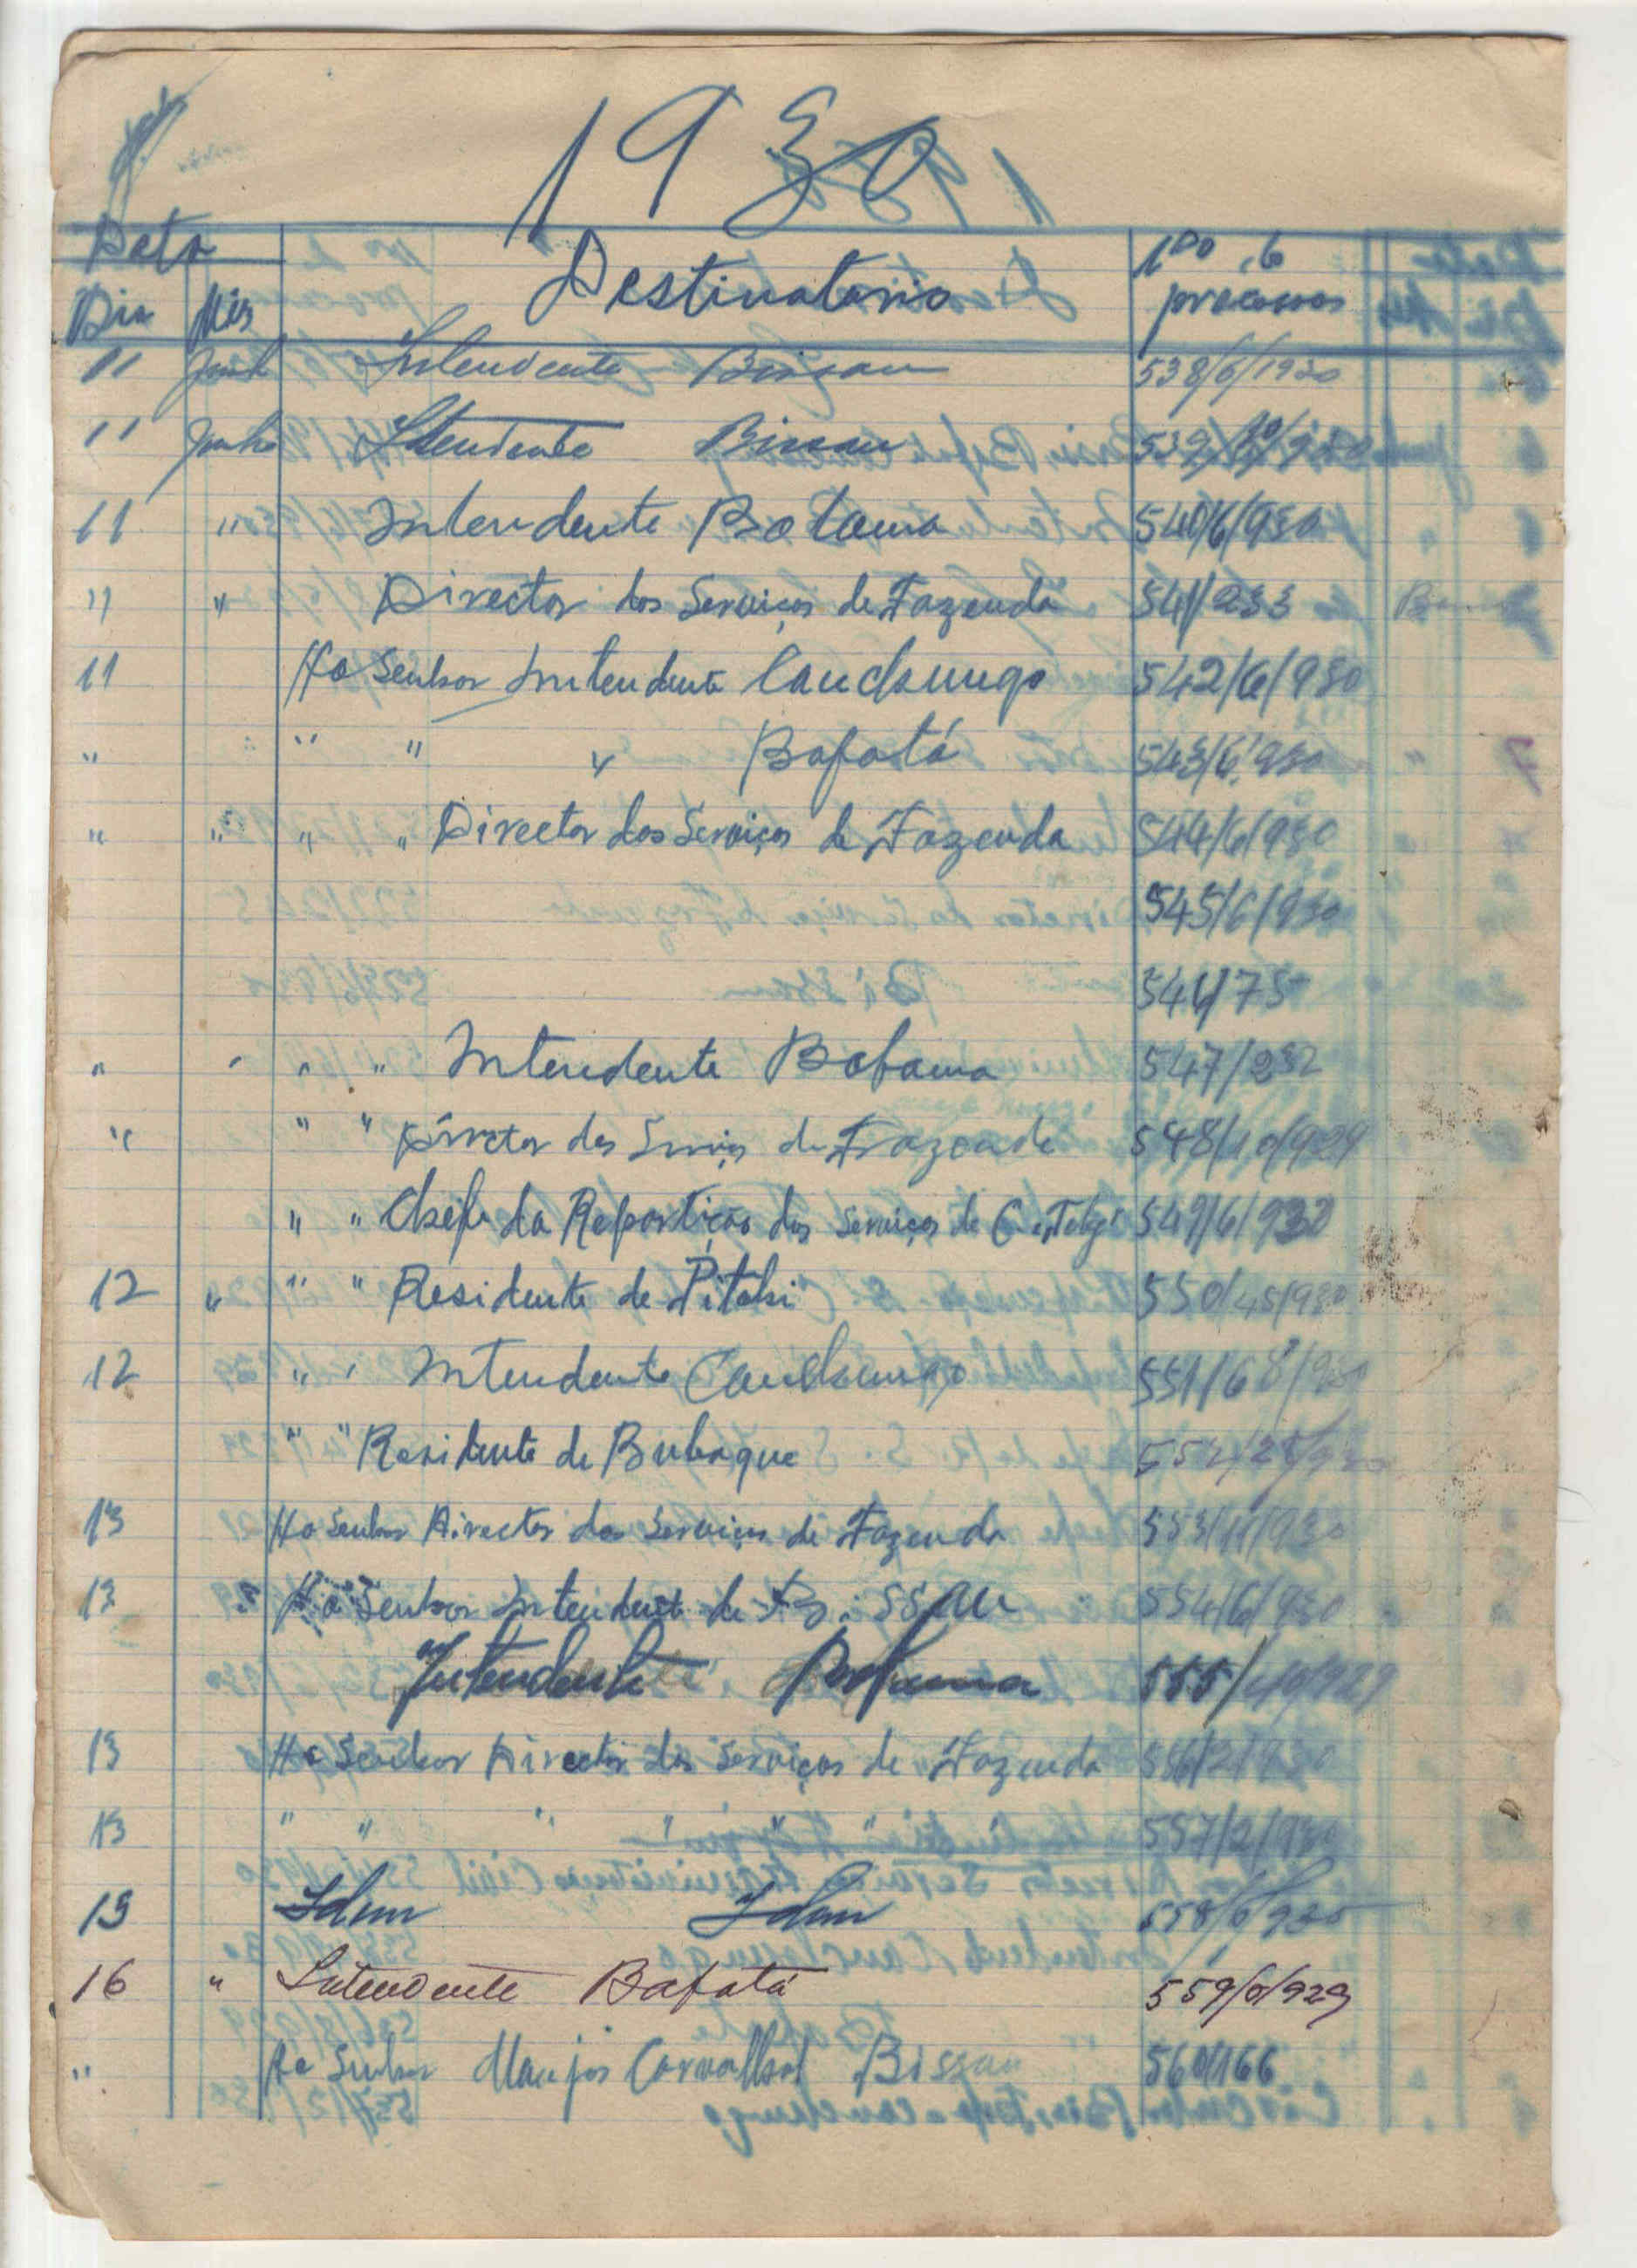 1930
Data
Dia Mês Destinatario Nº do processos
11 Junho Intendente Bissau 538/6/1930
11 Junho Itendente Bissau 539/10/930
11 " Intendente Bolama 540/6/930
11 " Director dos Serviços de Fazenda 541/233
11 Ao Senhor Intendente Canchungo 542/6/930
" " " " " Bafatá 543/6/930
" " " " Director dos Serviços de Fazenda 544/6/930
545/6/930
546/75
" " " " Intendente Bolama 547/232
" " " Director dos Serviços de Fazenda 548/10/929
" " Chefe da Repartição dos Serviços de C. e Telgs 549/6/930
12 " " " Residente de Pitchi 550/45/930
12 " " Intendente Canchungo 551/68/930
" " Residente de Bubaque 552/28/930
13 Ao Senhor Director dos Serviços de Fazenda 553/11/930
13 " Ao Senhor Intendente de Bissau 554/6/930
Intendente Bolama 555/10/929
13 Ao Senhor Director dos Serviços de Fazenda 556/2/930
13 " " " " " " 557/2/930
13 Idem Idem 558/6/930
16 " Intendente Bafatá 559/6/929
" Ao Senhor Carvalho Bissau 560/166